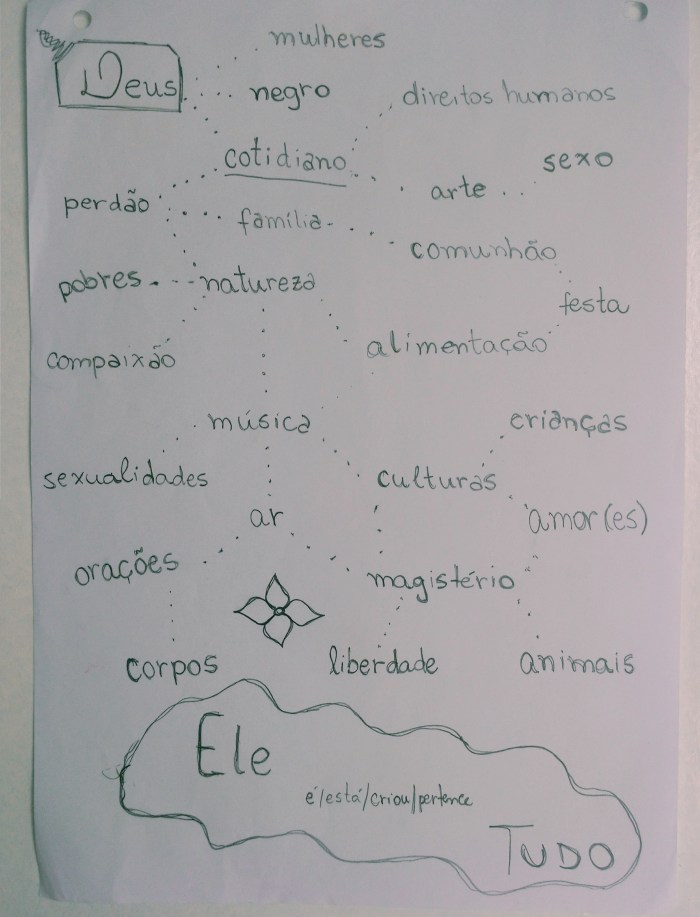 mulheres
Deus
negro
direitos humanos
cotidiano
sexo
arte
perdão
família
comunhão
pobres
natureza
festa
alimentação
compaixão
música
crianças
sexualidades
culturas
ar
amor(es)
orações
magistério
corpos
liberdade
animais
Ele
é/está/criou/pertence
TUDO